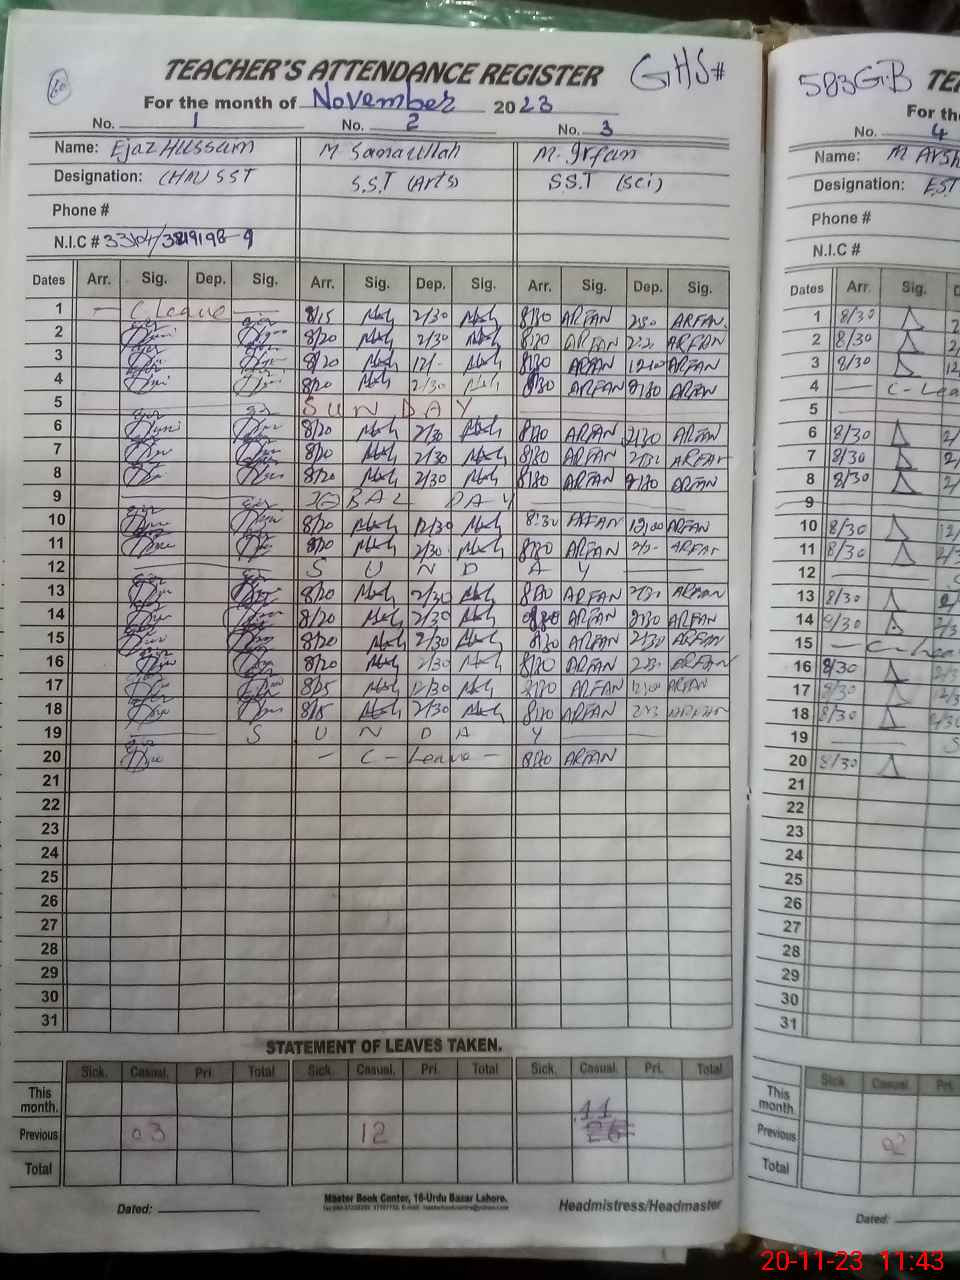 TEACHER'S ATTENDANCE REGISTER GHS#
For the month of November 2023
No. 1 No. 2 No. 3
Name: Ejaz Hussain M Sanaullah M. Irfan
Designation: SST S.S.T (Arts) SS.T (Sci)
Phone #
N.I.C #
Dates Arr. Sig. Dep. Sig. Arr. Sig. Dep. Sig. Arr. Sig. Dep. Sig.
1 C. Leave 8/15 2/30 8/30 ARFAN 2/30 ARFAN
2 8/20 2/30 8/30 ARFAN ARFAN
3 8/20 12/- 8/30 ARFAN 12:00 ARFAN
4 8/20 2/30 8/30 ARFAN 2/30 ARFAN
5 SUNDAY
6 8/20 2/30 8/30 ARFAN 2/30 ARFAN
7 8/20 2/30 8/30 ARFAN 2/30 ARFAN
8 8/20 2/30 8/30 ARFAN 2/30 ARFAN
9 IQBAL DAY
10 8/20 12/30 8:30 ARFAN 12:00 ARFAN
11 8/20 2/30 8/30 ARFAN ARFAN
12 SUNDAY
13 8/20 2/30 8/30 ARFAN 2/30 ARFAN
14 8/20 2/30 8/30 ARFAN 2/30 ARFAN
15 8/20 2/30 8/30 ARFAN 2/30 ARFAN
16 8/20 2/30 8/30 ARFAN 2/30 ARFAN
17 8/15 12/30 8/30 ARFAN 12:00 ARFAN
18 8/15 2/30 8/30 ARFAN ARFAN
19 SUNDAY
20 - C - Leave - 8/30 ARFAN
21
22
23
24
25
26
27
28
29
30
31
STATEMENT OF LEAVES TAKEN.
Sick. Casual. Pri. Total Sick. Casual. Pri. Total Sick. Casual. Pri. Total
This month.
11
Previous 03 12
Total
Dated:
Master Book Center, 16-Urdu Bazar Lahore.
Headmistress/Headmaster
583 GB TE
For the
No. 4
Name: M Arsh
Designation: EST
Phone #
N.I.C #
Dates Arr. Sig. D
1 8/30
2 8/30
3 8/30
4 C-Lea
5
6 8/30
7 8/30
8 8/30
9
10 8/30
11 8/30
12 S
13 8/30
14 8/30
15 - C-Lea
16 8/30
17 8/30
18 8/30
19 S
20 8/30
21
22
23
24
25
26
27
28
29
30
31
Sick. Casual. Pri.
This month.
Previous 02
Total
Dated:
20-11-23 11:43